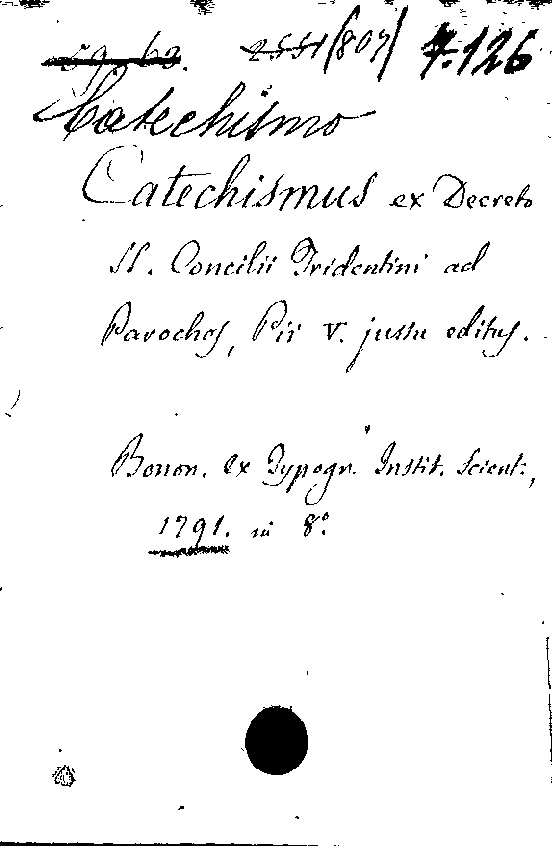 59. 63. 2551 (807) 7.126
Catechismo
Catechismus ex Decreto
SS. Concilii Tridentini ad
Parochos, Pii V. jussu editus.
Bonon. ex Typogr. Instit. Scient.,
1791. in 8°.